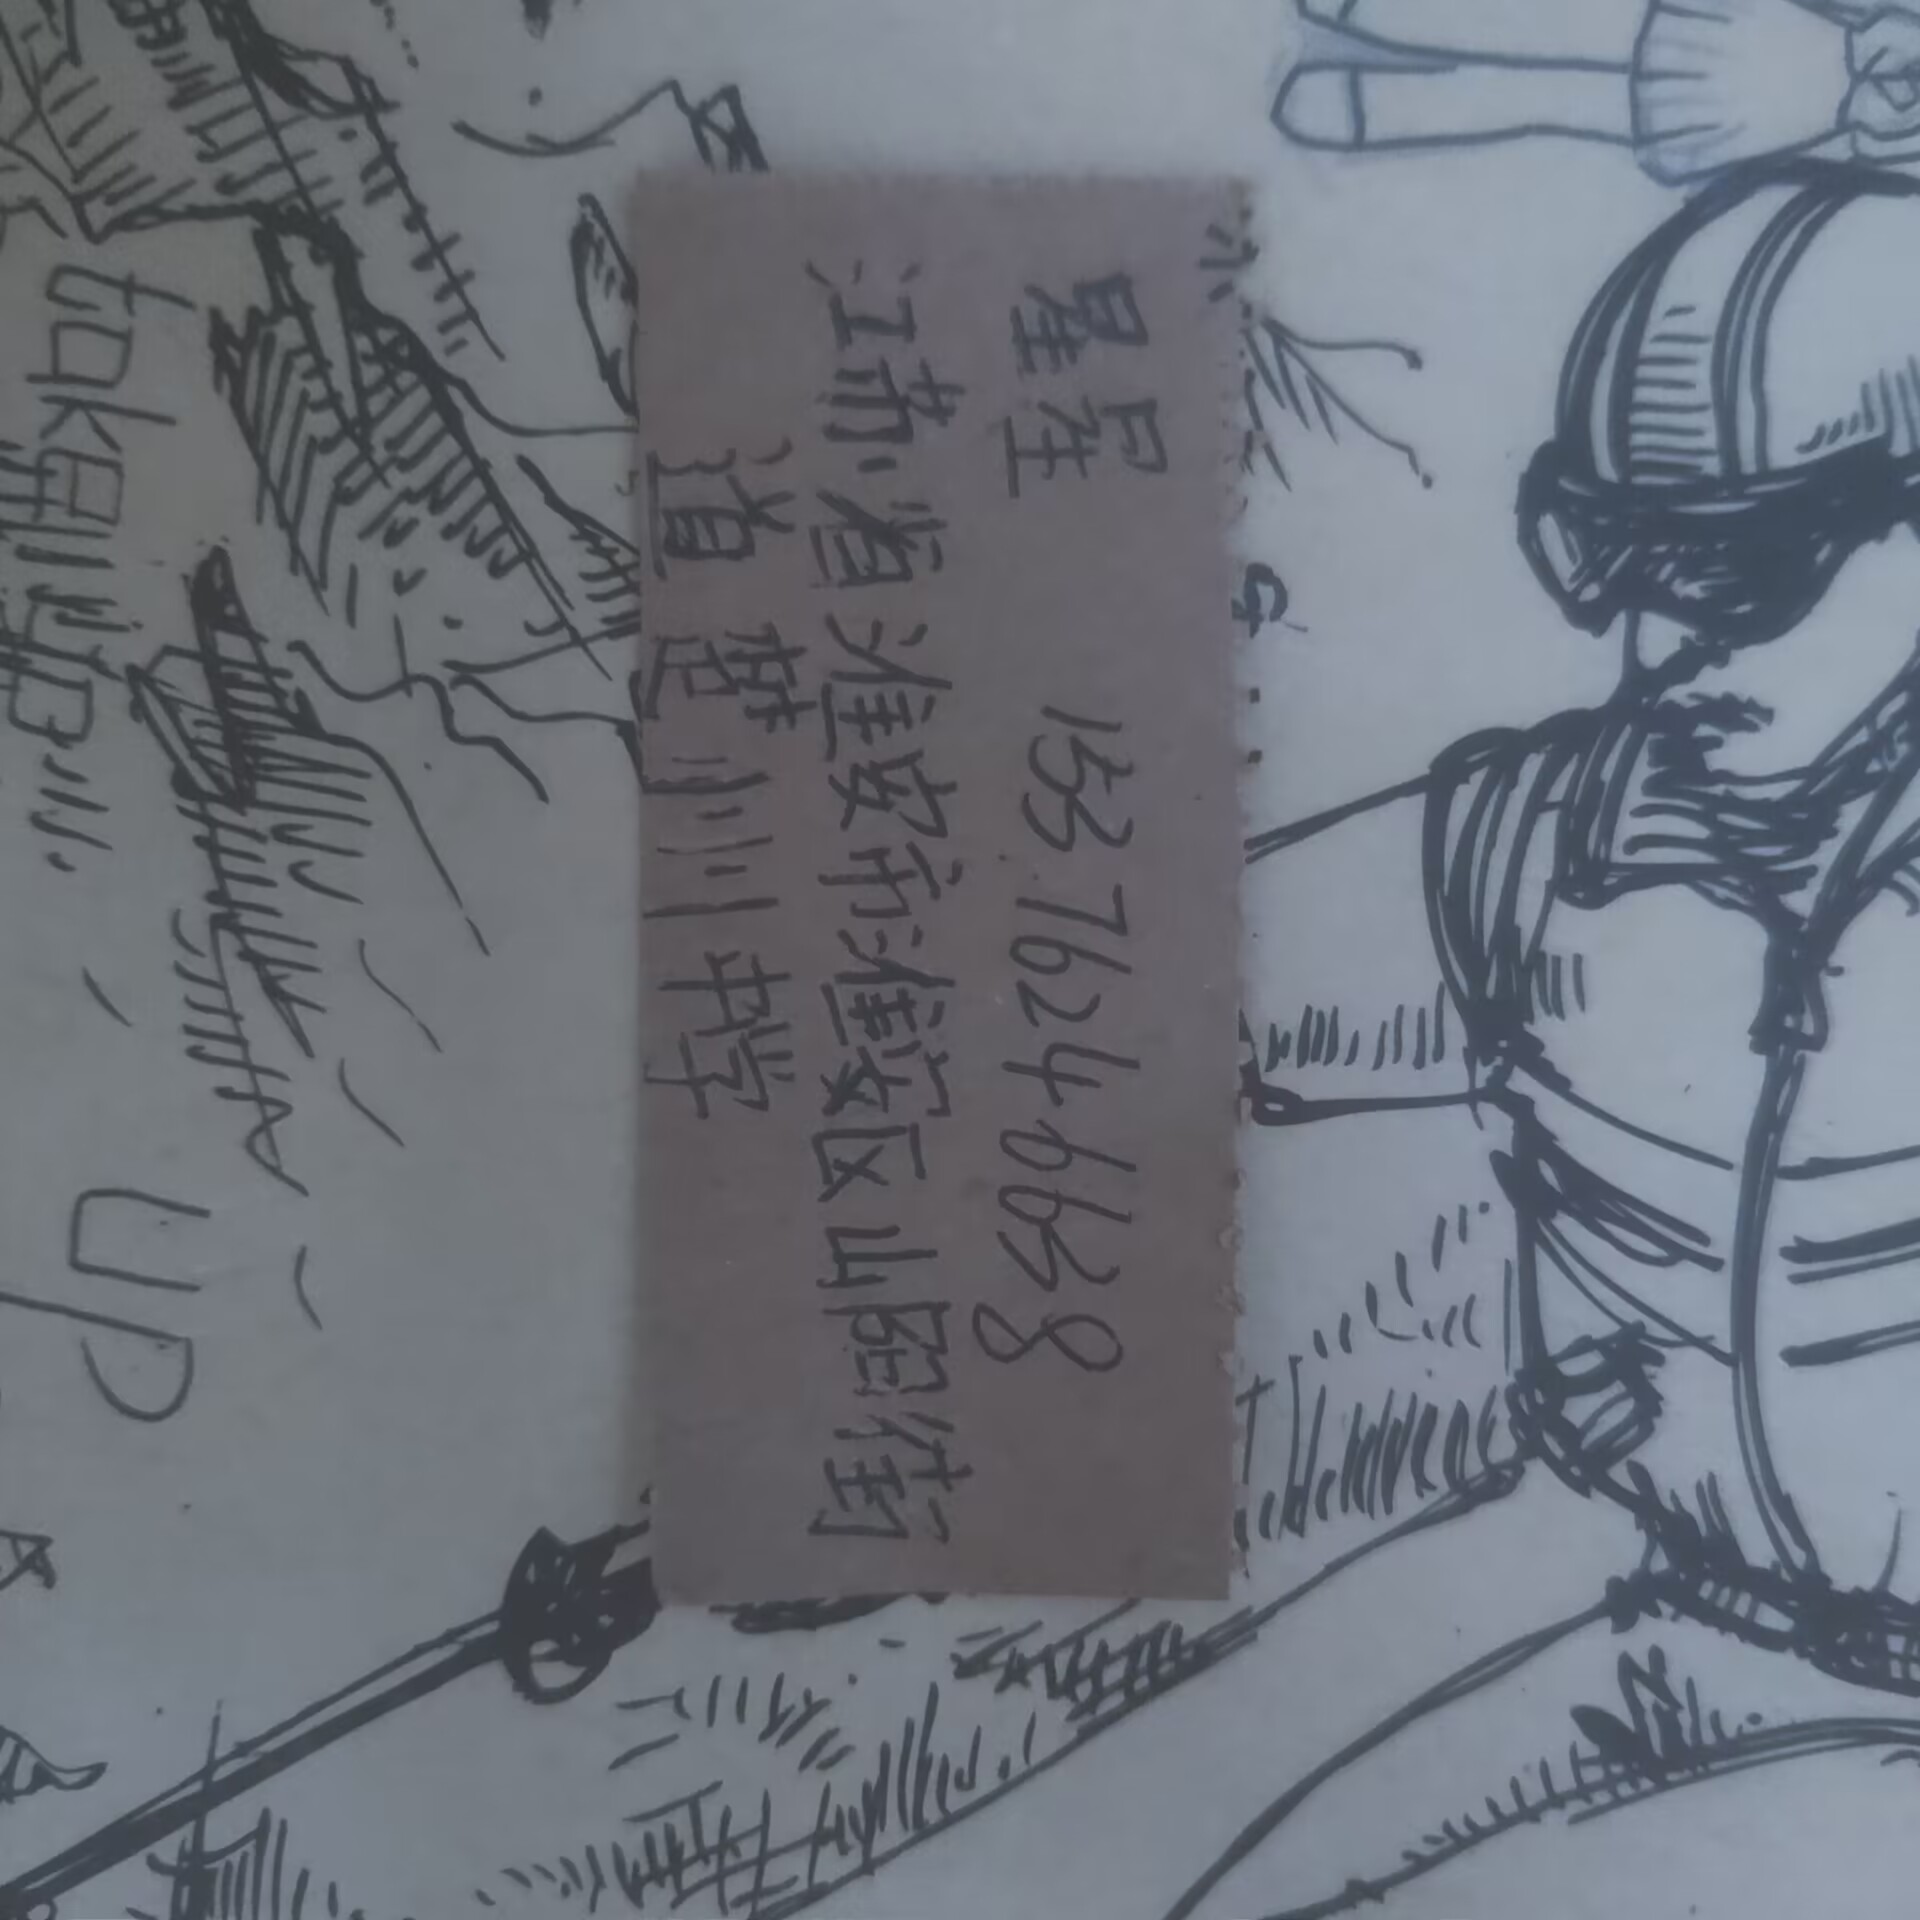 星星 15376246638
江苏省淮安市淮安区山阳街
道楚州中学
take up
UP